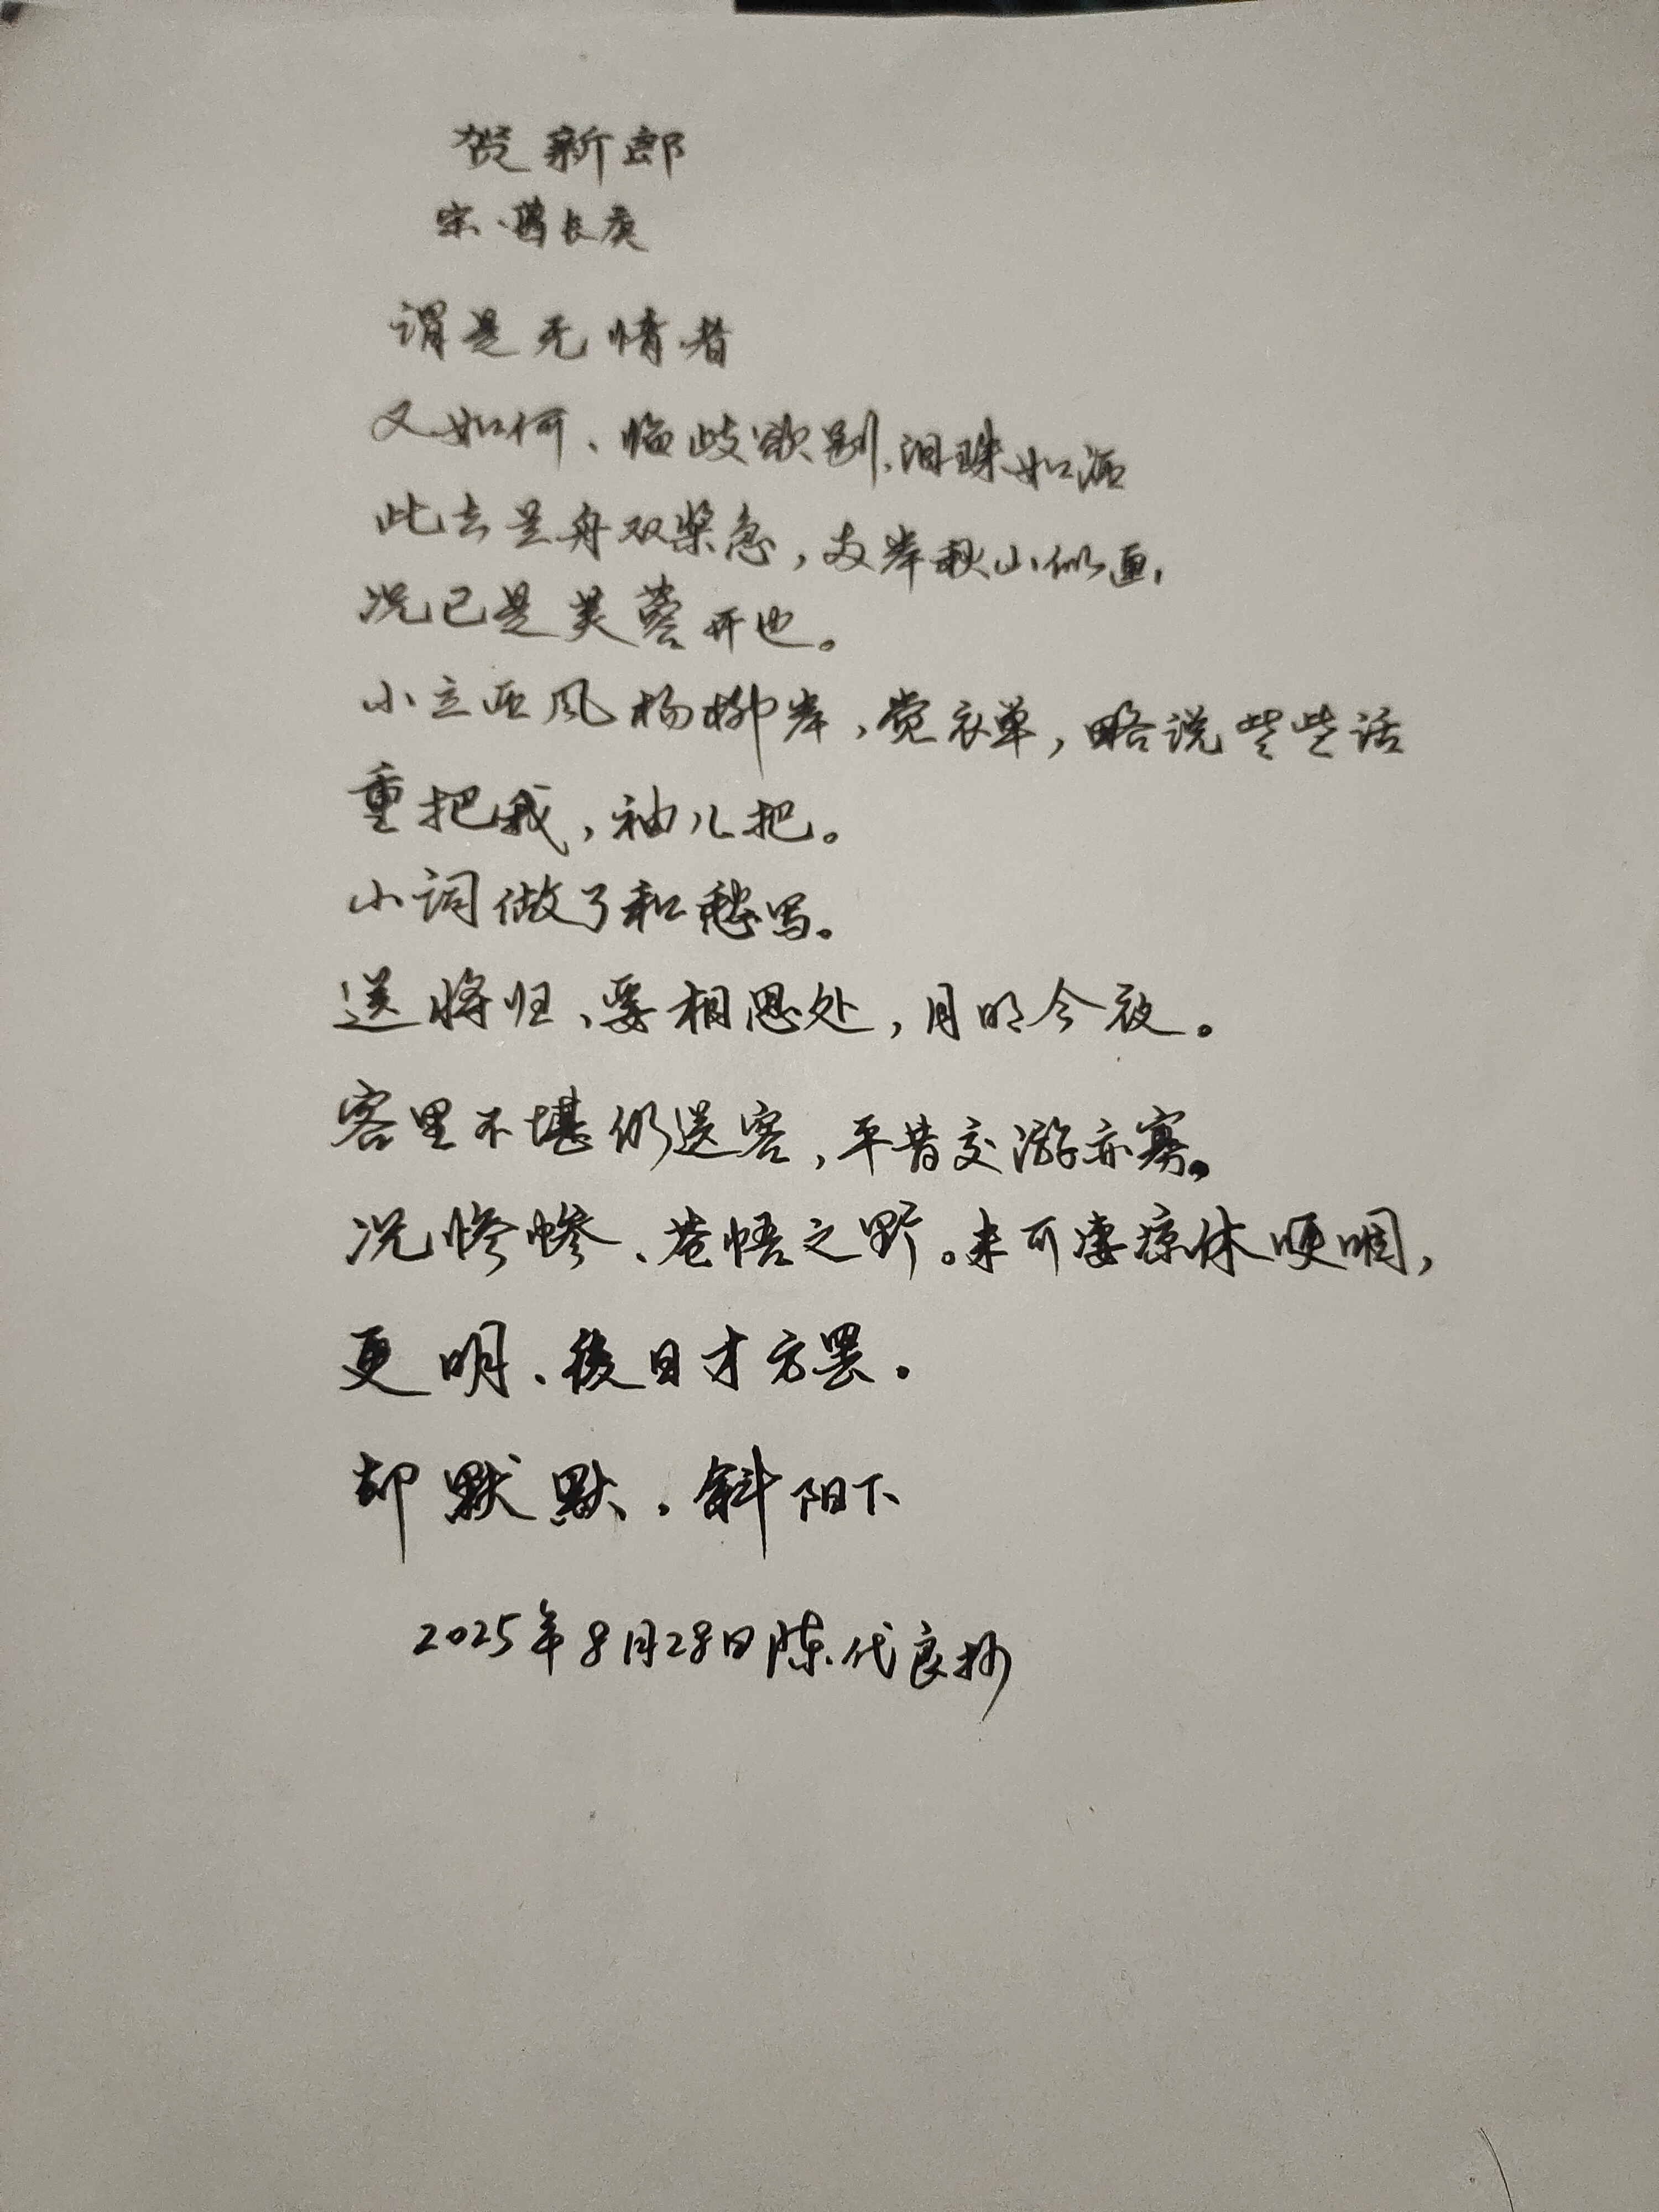 贺新郎
宋、葛长庚
谓是无情者
又如何、临歧欲别,泪珠如洒
此去是舟双桨急,两岸秋山似画,
况已是芙蓉开也。
小立西风杨柳岸,觉衣单,略说些些话
重把我,袖儿把。
小词做了和愁写。
送将归、要相思处,月明今夜。
客里不堪仍送客,平昔交游亦寡。
况惨惨、苍梧之野。未可凄凉休哽咽,
更明、後日才方罢。
却默默,斜阳下
2025年8月28日陈代良抄